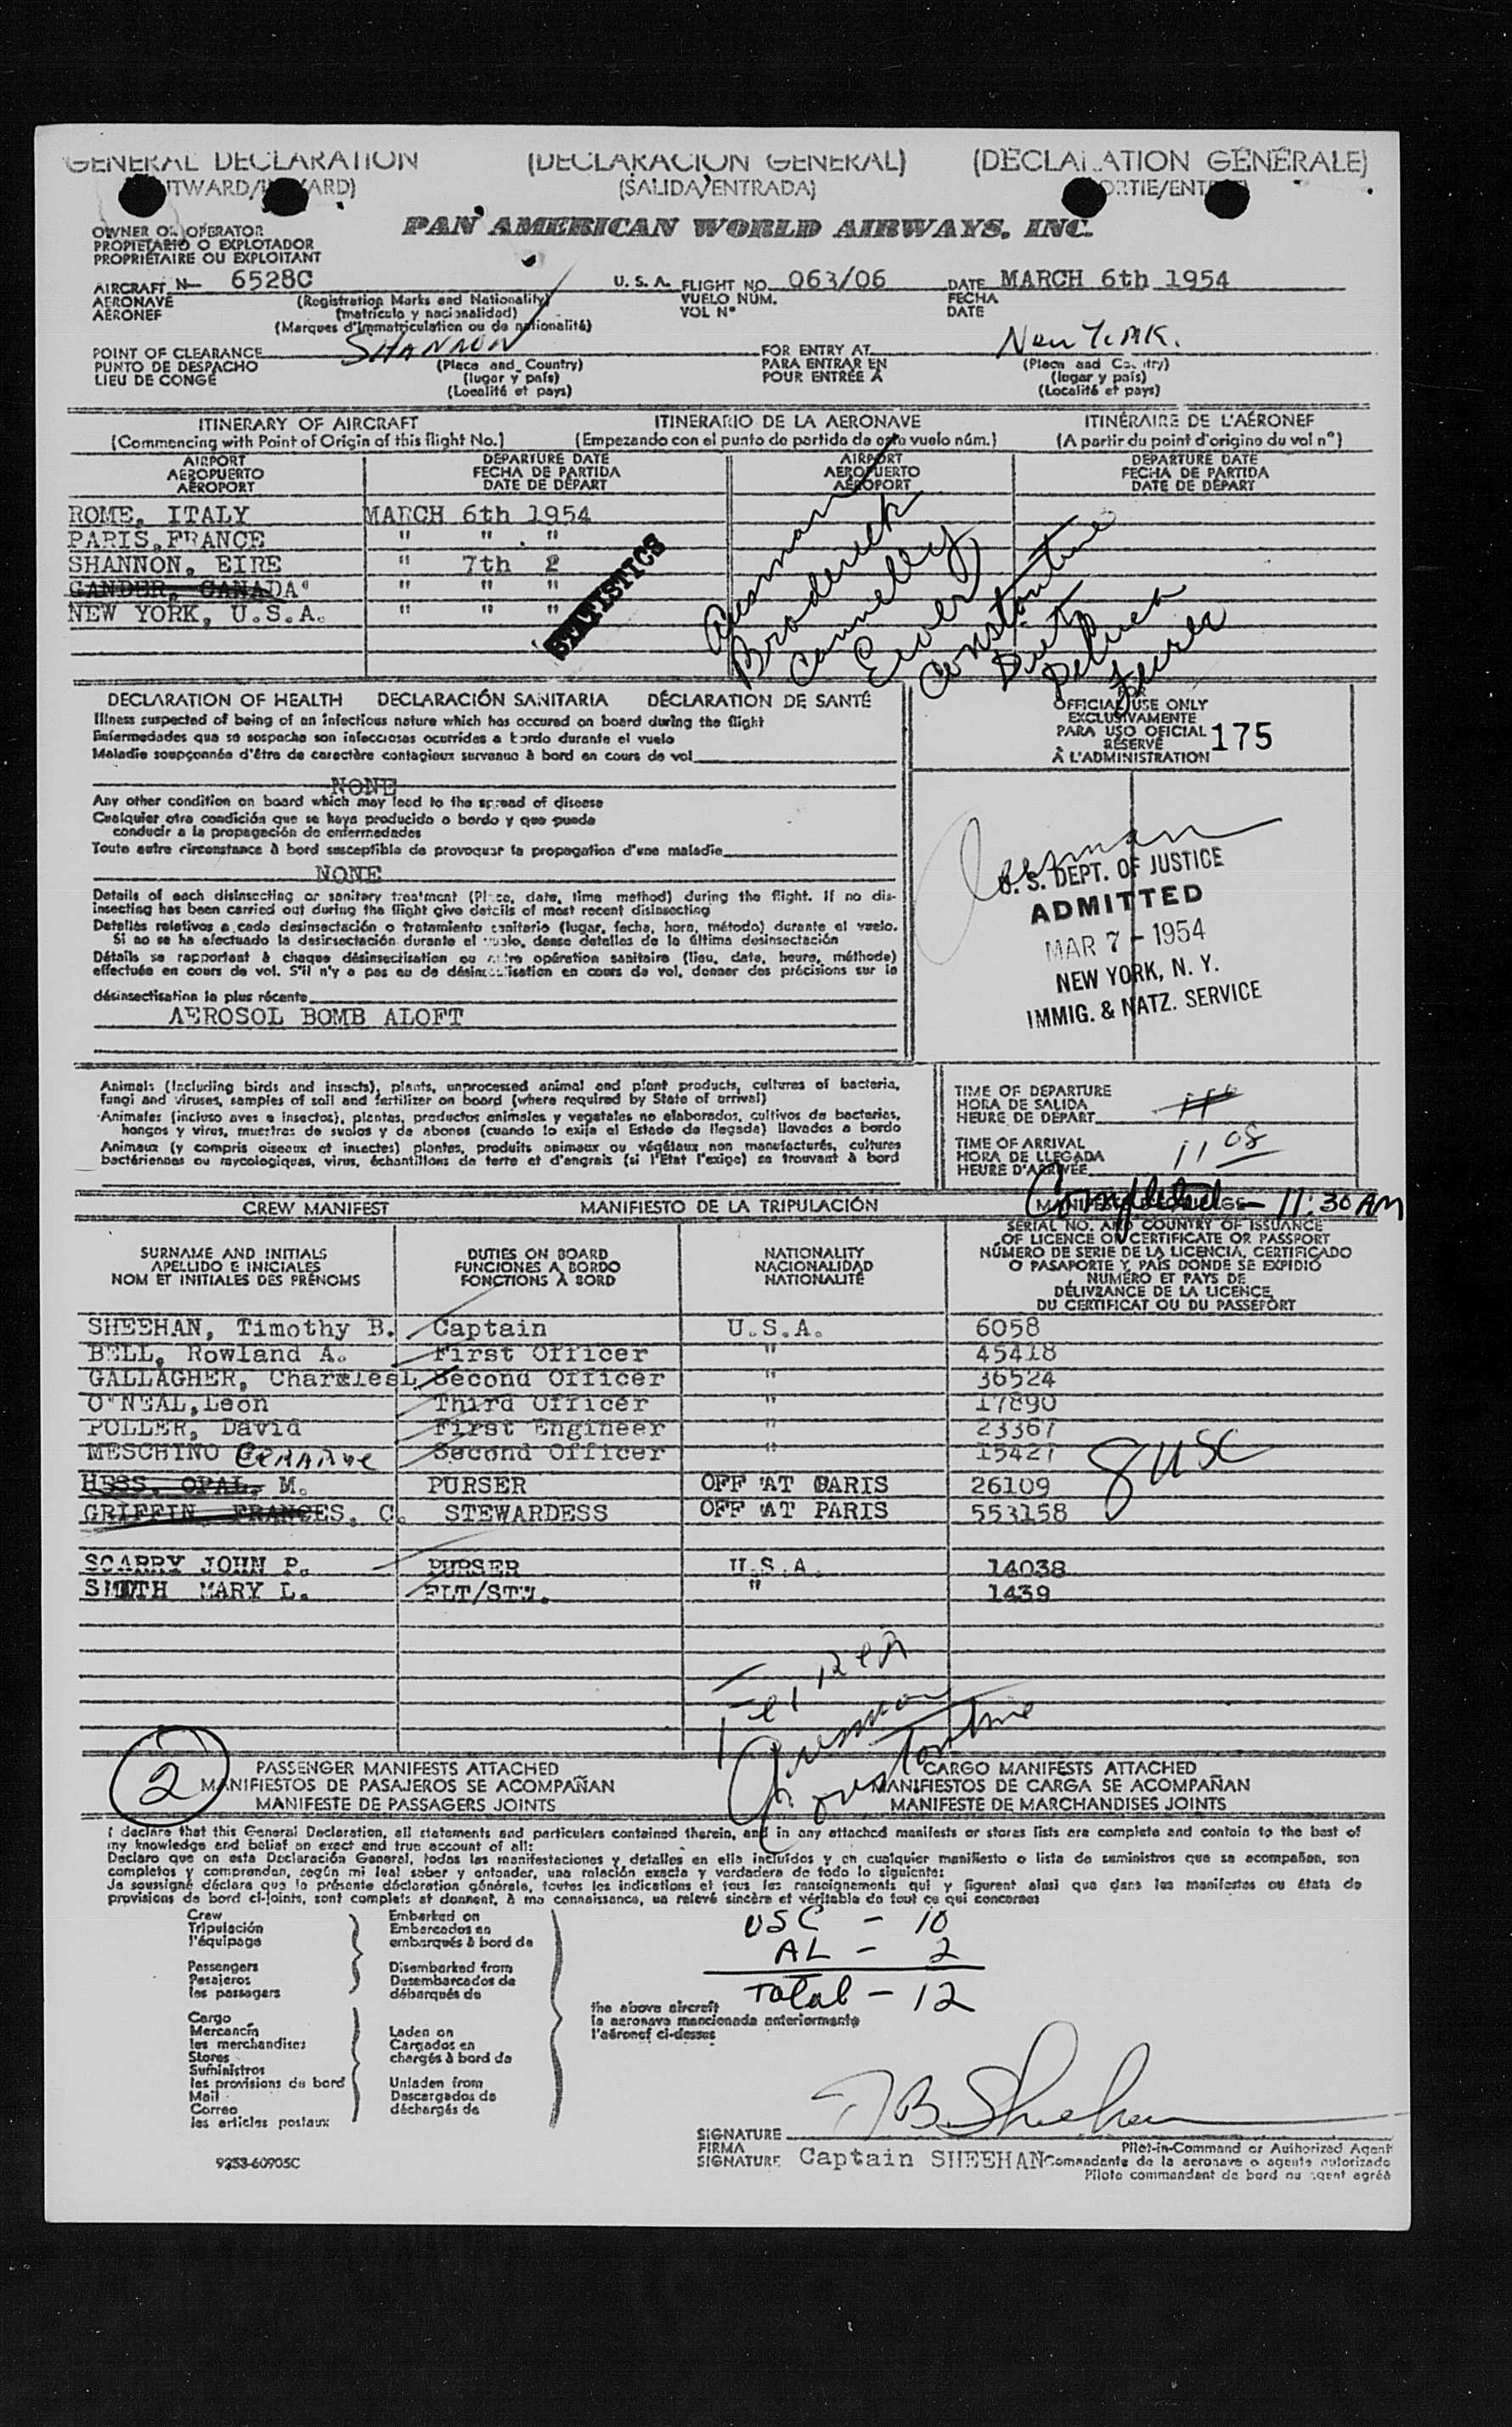 GENERAL DECLARATION (DECLARACION GENERAL) (DÉCLARATION GÉNÉRALE)
(SALIDA/ENTRADA)
OWNER OR OPERATOR
PROPIETARIO O EXPLOTADOR
PROPRIÉTAIRE OU EXPLOITANT
PAN AMERICAN WORLD AIRWAYS, INC.
AIRCRAFT N- 6528C U. S. A. FLIGHT NO. 063/06 DATE MARCH 6th 1954
AERONAVE (Registration Marks and Nationality) VUELO NÚM. FECHA
AÉRONEF (matrícula y nacionalidad) VOL Nº DATE
(Marques d'immatriculation ou de nationalité)
POINT OF CLEARANCE SHANNON FOR ENTRY AT New York.
PUNTO DE DESPACHO (Place and Country) PARA ENTRAR EN (Place and Country)
LIEU DE CONGÉ (lugar y país) POUR ENTRÉE À (lugar y país)
(Localité et pays) (Localité et pays)
ITINERARY OF AIRCRAFT ITINERARIO DE LA AERONAVE ITINÉRAIRE DE L'AÉRONEF
(Commencing with Point of Origin of this flight No.) (Empezando con el punto de partida de este vuelo núm.) (A partir du point d'origine du vol nº)
AIRPORT DEPARTURE DATE AIRPORT DEPARTURE DATE
AEROPUERTO FECHA DE PARTIDA AEROPUERTO FECHA DE PARTIDA
AÉROPORT DATE DE DÉPART AÉROPORT DATE DE DÉPART
ROME, ITALY MARCH 6th 1954
PARIS, FRANCE " " "
SHANNON, EIRE " 7th "
GANDER, CANADA " " "
NEW YORK, U.S.A. " " "
STATISTICS
Broderick
Connelly
Constantine
DeLuca
DECLARATION OF HEALTH DECLARACIÓN SANITARIA DÉCLARATION DE SANTÉ
Illness suspected of being of an infectious nature which has occured on board during the flight
Enfermedades que se sospecha son infecciosas ocurridas a bordo durante el vuelo
Maladie soupçonnée d'être de caractère contagieux survenue à bord en cours de vol
NONE
Any other condition on board which may lead to the spread of disease
Cualquier otra condición que se haya producido a bordo y que pueda
conducir a la propagación de enfermedades
Toute autre circonstance à bord susceptible de provoquer la propagation d'une maladie
NONE
Details of each disinsecting or sanitary treatment (Place, date, time method) during the flight. If no dis-
insecting has been carried out during the flight give details of most recent disinsecting
Detalles relativos a cada desinsectación o tratamiento sanitario (lugar, fecha, hora, método) durante el vuelo.
Si no se ha efectuado la desinsectación durante el vuelo, dense detalles de la última desinsectación
Détails se rapportant à chaque désinsectisation ou autre opération sanitaire (lieu, date, heure, méthode)
effectuée en cours de vol. S'il n'y a pas eu de désinsectisation en cours de vol, donner des précisions sur la
désinsectisation la plus récente
AEROSOL BOMB ALOFT
OFFICIAL USE ONLY
EXCLUSIVAMENTE
PARA USO OFICIAL
RÉSERVÉ
À L'ADMINISTRATION
175
U. S. DEPT. OF JUSTICE
ADMITTED
MAR 7 - 1954
NEW YORK, N. Y.
IMMIG. & NATZ. SERVICE
Animals (Including birds and insects), plants, unprocessed animal and plant products, cultures of bacteria,
fungi and viruses, samples of soil and fertilizer on board (where required by State of arrival)
Animales (incluso aves e insectos), plantas, productos animales y vegetales no elaborados, cultivos de bacterias,
hongos y virus, muestras de suelos y de abonos (cuando lo exija el Estado de llegada) llevados a bordo
Animaux (y compris oiseaux et insectes) plantes, produits animaux ou végétaux non manufacturés, cultures
bactériennes ou mycologiques, virus, échantillons de terre et d'engrais (si l'Etat l'exige) se trouvant à bord
TIME OF DEPARTURE
HORA DE SALIDA
HEURE DE DÉPART
TIME OF ARRIVAL
HORA DE LLEGADA 11 08
HEURE D'ARRIVÉE
Completed - 11:30 AM
CREW MANIFEST MANIFIESTO DE LA TRIPULACIÓN
SURNAME AND INITIALS DUTIES ON BOARD NATIONALITY SERIAL NO. AND COUNTRY OF ISSUANCE
APELLIDO E INICIALES FUNCIONES A BORDO NACIONALIDAD OF LICENCE OR CERTIFICATE OR PASSPORT
NOM ET INITIALES DES PRÉNOMS FONCTIONS À BORD NATIONALITÉ NÚMERO DE SERIE DE LA LICENCIA, CERTIFICADO
O PASAPORTE Y PAÍS DONDE SE EXPIDIÓ
NUMÉRO ET PAYS DE
DÉLIVRANCE DE LA LICENCE,
DU CERTIFICAT OU DU PASSEPORT
SHEEHAN, Timothy B. Captain U.S.A. 6058
BELL, Rowland A. First Officer " 45418
GALLAGHER, Charles L. Second Officer " 36524
O'NEAL, Leon Third Officer " 17890
POLLER, David First Engineer " 23367
MESCHINO Second Officer " 15427
8 USC
HESS, OPAL, M. PURSER OFF AT PARIS 26109
GRIFFIN, FRANCES, C. STEWARDESS OFF AT PARIS 553158
SCARRY JOHN P. PURSER U.S.A. 14038
SMITH MARY L. FLT/STW. " 1439
Constantine
2
PASSENGER MANIFESTS ATTACHED CARGO MANIFESTS ATTACHED
MANIFIESTOS DE PASAJEROS SE ACOMPAÑAN MANIFIESTOS DE CARGA SE ACOMPAÑAN
MANIFESTE DE PASSAGERS JOINTS MANIFESTE DE MARCHANDISES JOINTS
I declare that this General Declaration, all statements and particulars contained therein, and in any attached manifests or stores lists are complete and contain to the best of
my knowledge and belief an exact and true account of all:
Declaro que en esta Declaración General, todas las manifestaciones y detalles en ella incluídos y en cualquier manifiesto o lista de suministros que se acompañan, son
completos y comprenden, según mi leal saber y entender, una relación exacta y verdadera de todo lo siguiente:
Je soussigné déclare que la présente déclaration générale, toutes les indications et tous les renseignements qui y figurent ainsi que dans les manifestes ou états de
provisions de bord ci-joints, sont complets et donnent, à ma connaissance, un relevé sincère et véritable de tout ce qui concerne:
Crew Embarked on
Tripulación Embarcados en
l'équipage embarqués à bord de
Passengers Disembarked from
Pasajeros Desembarcados de
les passagers débarqués de
USC - 10
AL - 2
Total - 12
the above aircraft
la aeronave mencionada anteriormente
l'aéronef ci-dessus
Cargo
Mercancía Laden on
les merchandises Cargados en
Stores chargés à bord de
Suministros
les provisions de bord Unladen from
Mail Descargados de
Correo déchargés de
les articles postaux
T B Sheehan
SIGNATURE
FIRMA
SIGNATURE Captain SHEEHAN
Pilot-in-Command or Authorized Agent
Comandante de la aeronave o agente autorizado
Pilote commandant de bord ou agent agréé
9253-60905C